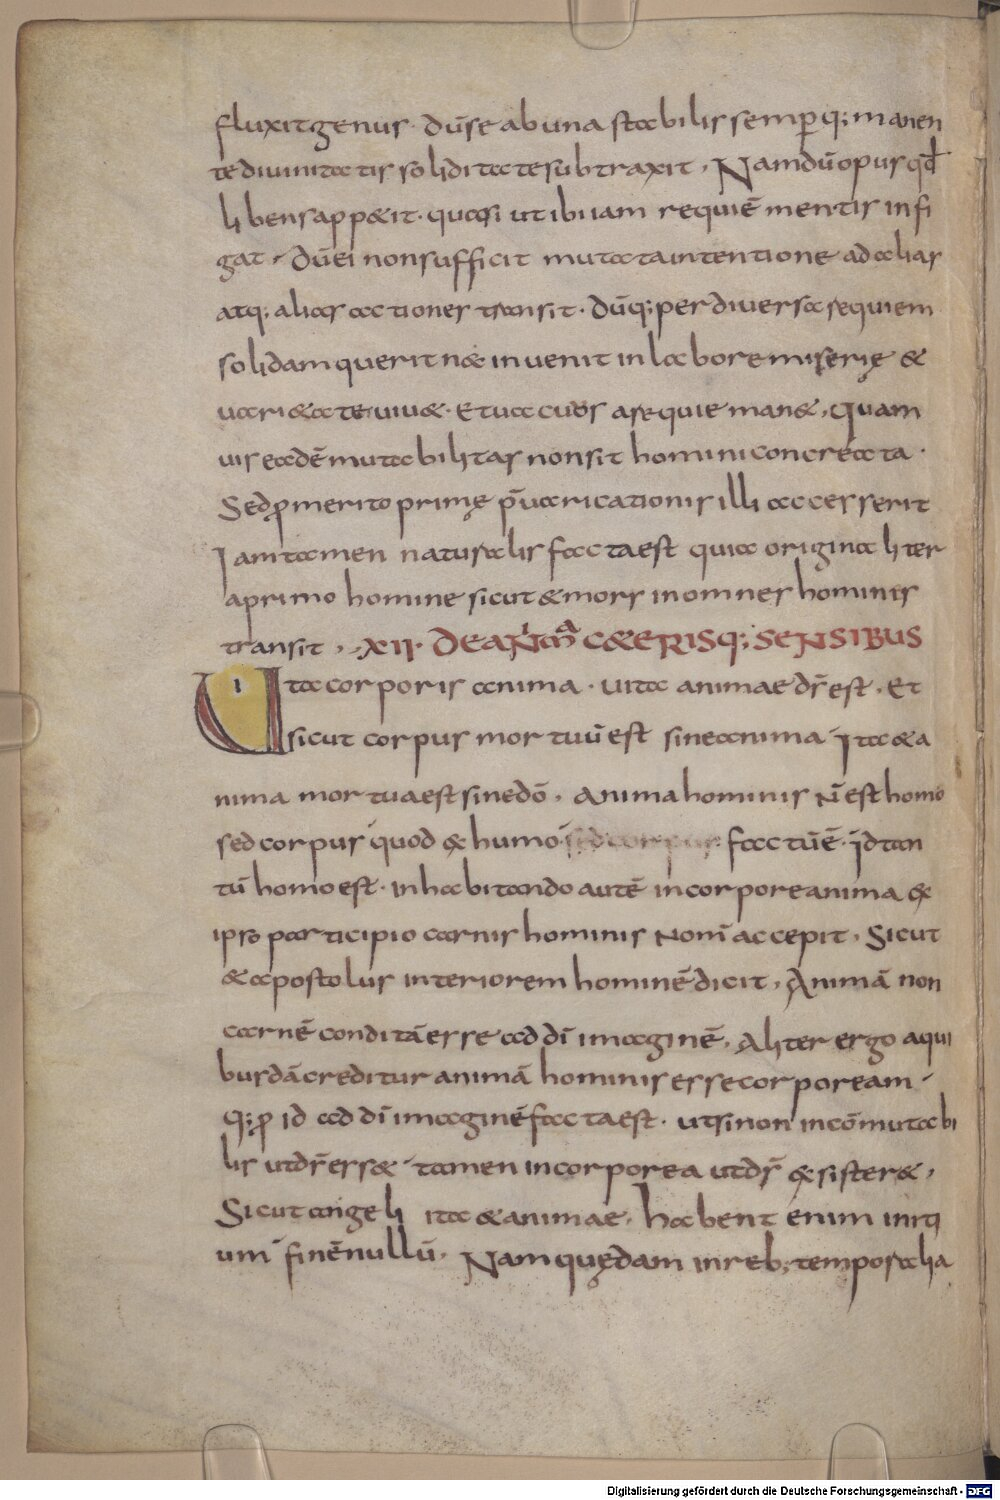 fluxit genus · dū se ab una stabilis semp̄ q; manen
te diuinitatis soliditate subtraxit · Nam dū opus qđ
libens app&it · quasi ut ibi iam requiē mentis infi
gat · dū ei non sufficit mutata intentione ad alias
atq; alias actiones transit · dūq; per diuersa sequiem
solidam querit n&#38; inuenit in labore miserię &
uari&ate uiu& · Et uacuus a requie man& · Quam
uis eadē mutabilitas non sit homini concreata ·
Sed ꝓ merito primę p̄uaricationis illi accesserit
Iam tamen naturalis facta est quia originaliter
a primo homine sicut & mors in omnes homines
transit · XII · DE ANIM̄A C&ERISQ; SENSIBUS
Uita corporis anima · uita animae dr̄ est · Et
sicut corpus mortuū est sine anima Ita & a
nima mortua est sine dō · Anima hominis n̄ est homo
sed corpus quod ex humo sed corpus factū ē · id tan
tū homo est · inhabitando autē in corpore anima ex
ipso participio carnis hominis nom̄ accepit · Sicut
& apostolus interiorem hominē dicit · Animā non
carnē conditā esse ad dī imaginē · Aliter ergo a qui
busdā creditur animā hominis esse corpoream ·
q; ꝓ id ad dī imaginē facta est · ut si non incōmutabi
lis ut dr̄ ess& · tamen incorporea ut dr̄ exsister& ·
Sicut angeli ita & animae · habent enim initi
um finē nullū · Nam quędam in reb; temporalia